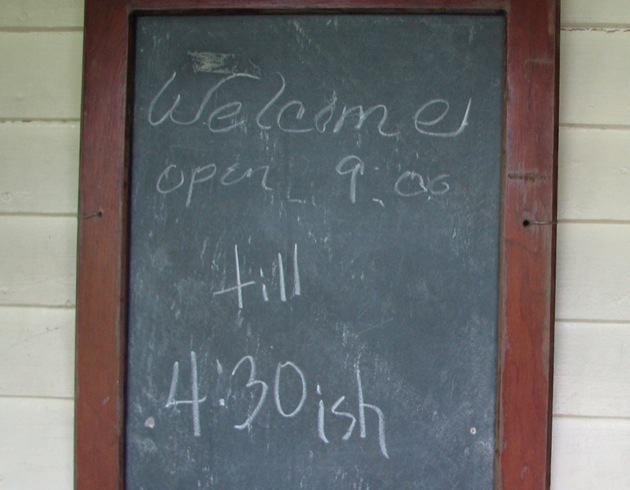 Welcome
open 9:00
till
4:30ish